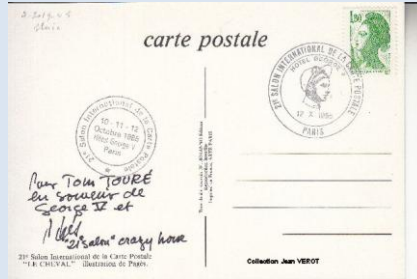 carte postale
1,80
21e SALON INTERNATIONAL DE LA CARTE POSTALE
HOTEL GEORGE V
PARIS
21e Salon International de la Carte Postale
10 - 11 - 12
Octobre 1986
Hôtel George V
Paris
Pour Tom TOURÉ
en souvenir de
George V et
"21e salon" crazy horse
21e Salon International de la Carte Postale
"LE CHEVAL" illustration de Pagès.
Collection Jean VEROT